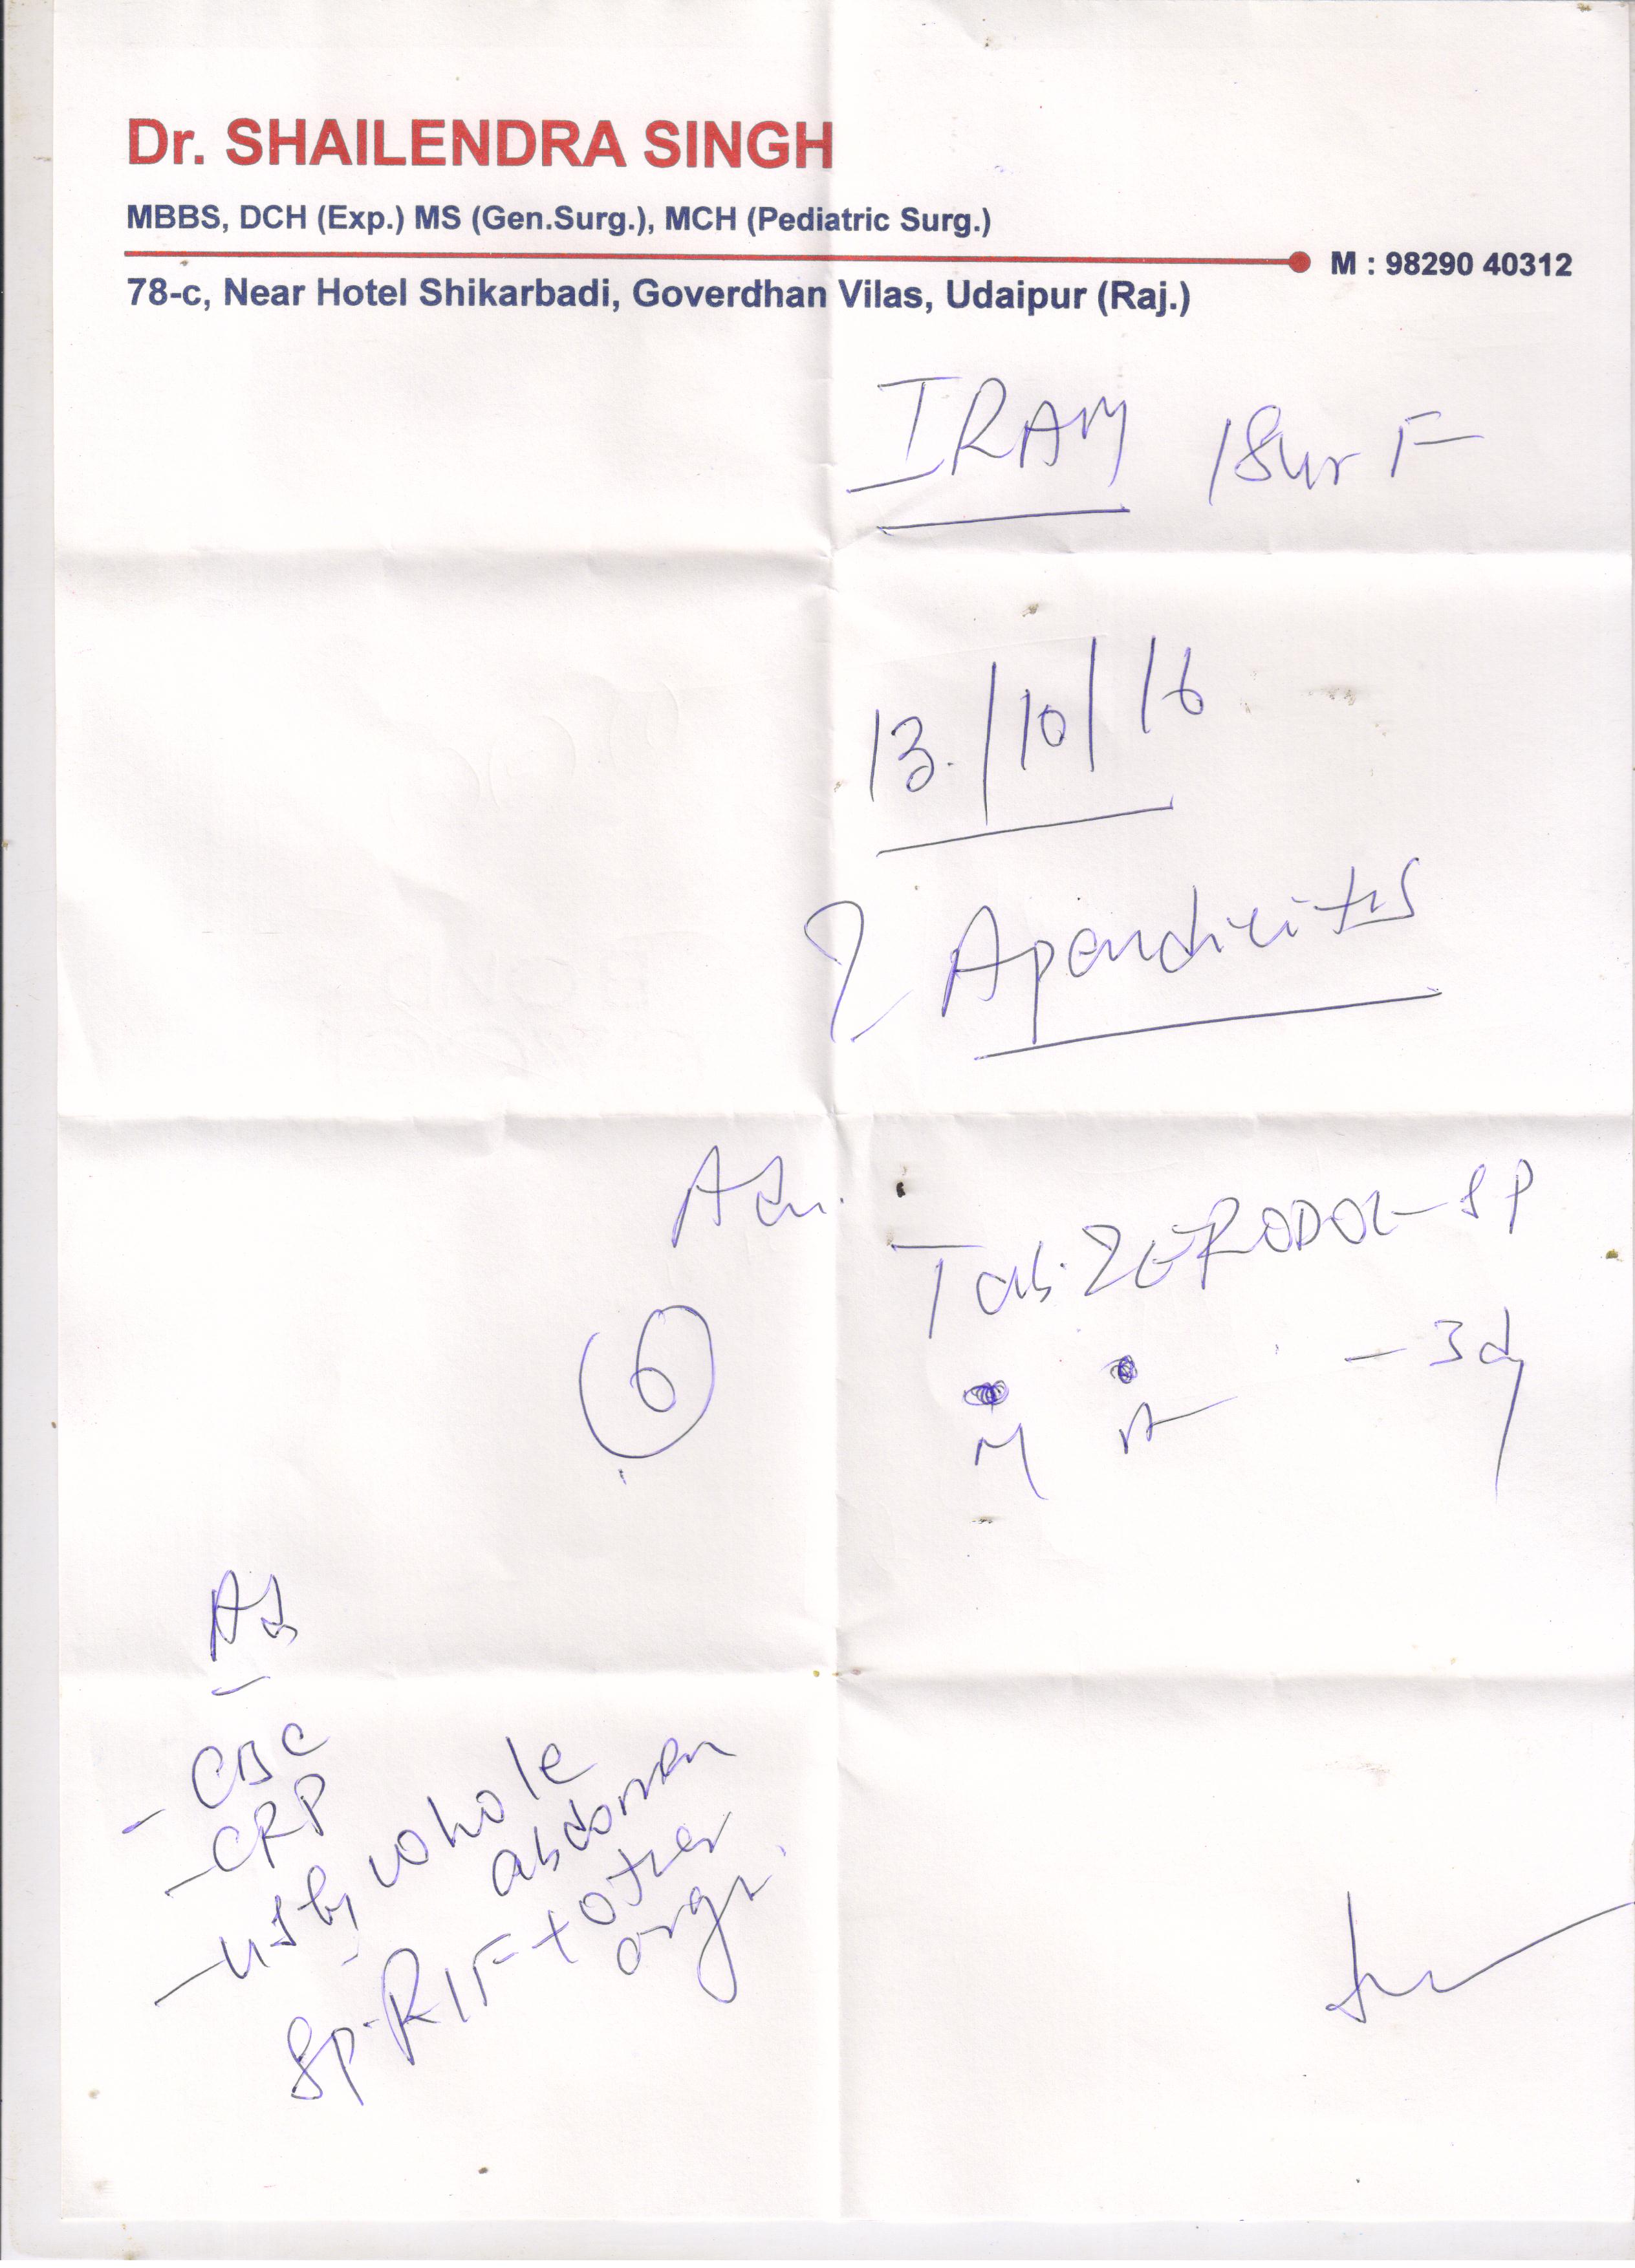 Dr. SHAILENDRA SINGH
MBBS, DCH (Exp.) MS (Gen.Surg.), MCH (Pediatric Surg.)
M : 98290 40312
78-c, Near Hotel Shikarbadi, Goverdhan Vilas, Udaipur (Raj.)
IRAM 18yr F
13/10/16
? Apendicitis
Adv.
Tab. ZERODOL-SP
- 3d
6
M
Ad
- CBC
- CRP
- USG whole
abdomen
Sp. RIF + other
orgn.